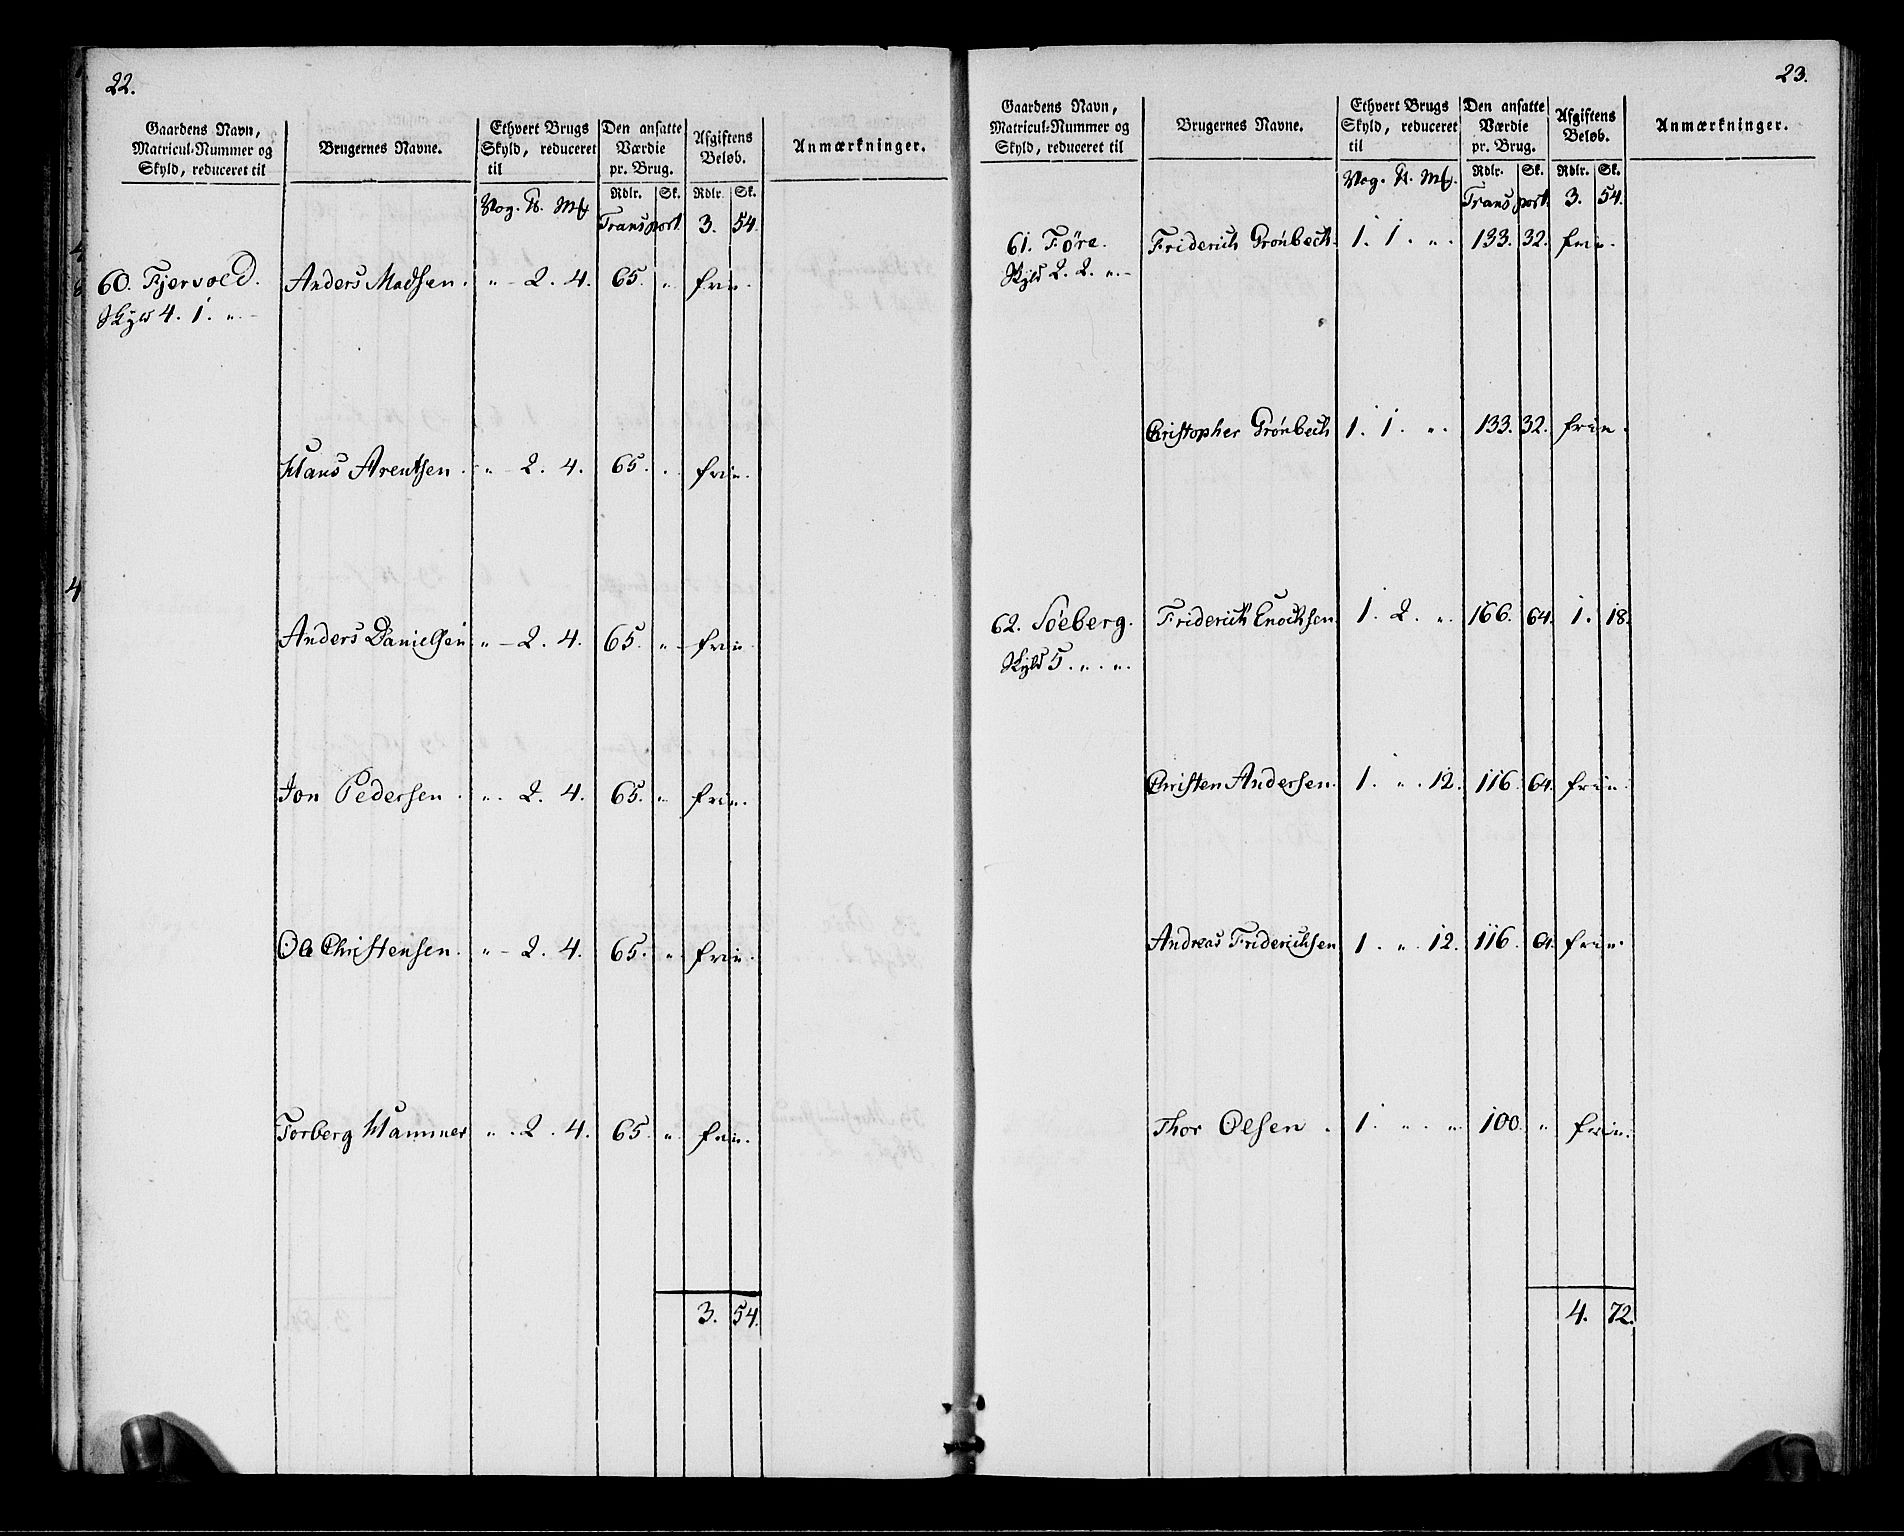 22.
Gaardens Navn, Matricul-Nummer og Skyld, reduceret til | Brugernes Navne. | Ethvert Brugs Skyld, reduceret til | Den ansatte Værdie pr. Brug. | Afgiftens Beløb. | Anmærkninger.
Vog. ℔. Mk | Rdlr. | Sk. | Rdlr. | Sk.
Transport 3. 54.
60. Fjervold. Anders Madsen. " - 2. 4. 65. " frie.
Skyld 4. 1. " -
Hans Arentsen. " - 2. 4. 65. " frie.
Anders Danielsen " - 2. 4. 65. " - frie.
Jon Pedersen. " . 2. 4. 65. " frie.
Ole Christensen. " - 2. 4. 65. " frie.
Torberg Hammer " . 2. 4. 65. " frie.
3. 54.
23.
Gaardens Navn, Matricul-Nummer og Skyld, reduceret til | Brugernes Navne. | Ethvert Brugs Skyld, reduceret til | Den ansatte Værdie pr. Brug. | Afgiftens Beløb. | Anmærkninger.
Vog. ℔. Mk. | Rdlr. | Sk. | Rdlr. | Sk.
Transport. 3. 54.
61. Føre. Friderich Grönbech. 1. 1. " . 133. 32. frie.
Skyld 2. 2. " -
Christopher Grönbech 1. 1. " . 133. 32. frie.
62. Söeberg. Friderich Enochsen 1. 2. " . 166. 64. 1. 18.
Skyld 5. " . " .
Christen Andersen. 1. " . 12. 116. 64. frie.
Andreas Friderichsen 1. " . 12. 116. 64. frie.
Thor Olsen. 1. " . " . 100. " frie.
4. 72.